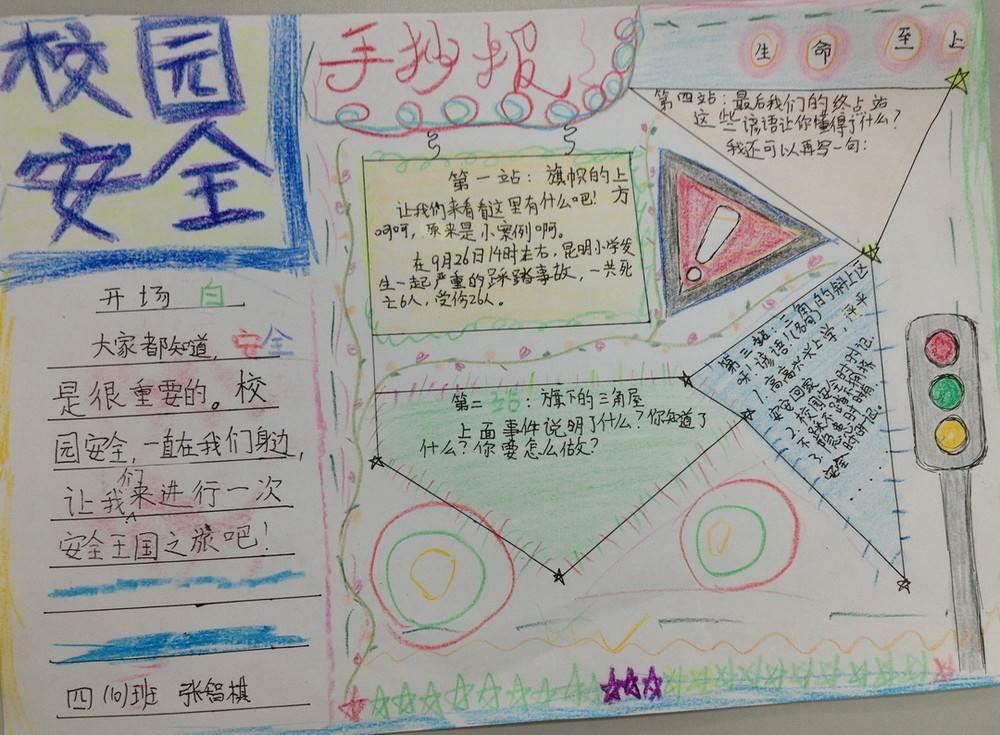 校园
安全
手抄报
生命至上
开场白
大家都知道,安全
是很重要的。校
园安全,一直在我们身边,
让我们来进行一次
安全王国之旅吧!
四(10)班 张铭棋
第一站:旗帜的上方
让我们来看看这里有什么吧!
呵呵,原来是小案例啊。
在9月26日14时左右,昆明小学发
生一起严重的踩踏事故,一共死
亡6人,受伤26人。
第二站:旗下的三角屋
上面事件说明了什么?你知道了
什么?你要怎么做?
第三站:三角的斜上区
1.高高兴兴上学,平平
安安回家
2.校园
3.
安全
第四站:最后我们的终点站
这些谚语让你懂得了什么?
我还可以再写一句: